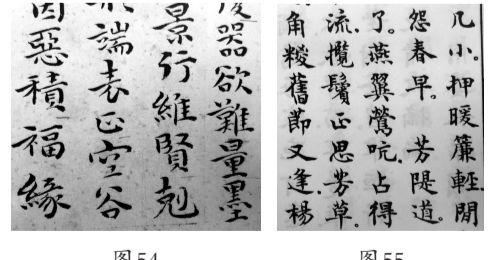 器欲難量墨
景行維賢剋
端表正空谷
因惡積福緣
几小。押暖簾輕。閒
怨春早。芳隄道。
了。燕翼鶯吭。占得
流。攬鬢正思芳草。
角糉舊莭又逢。楊
图54
图55